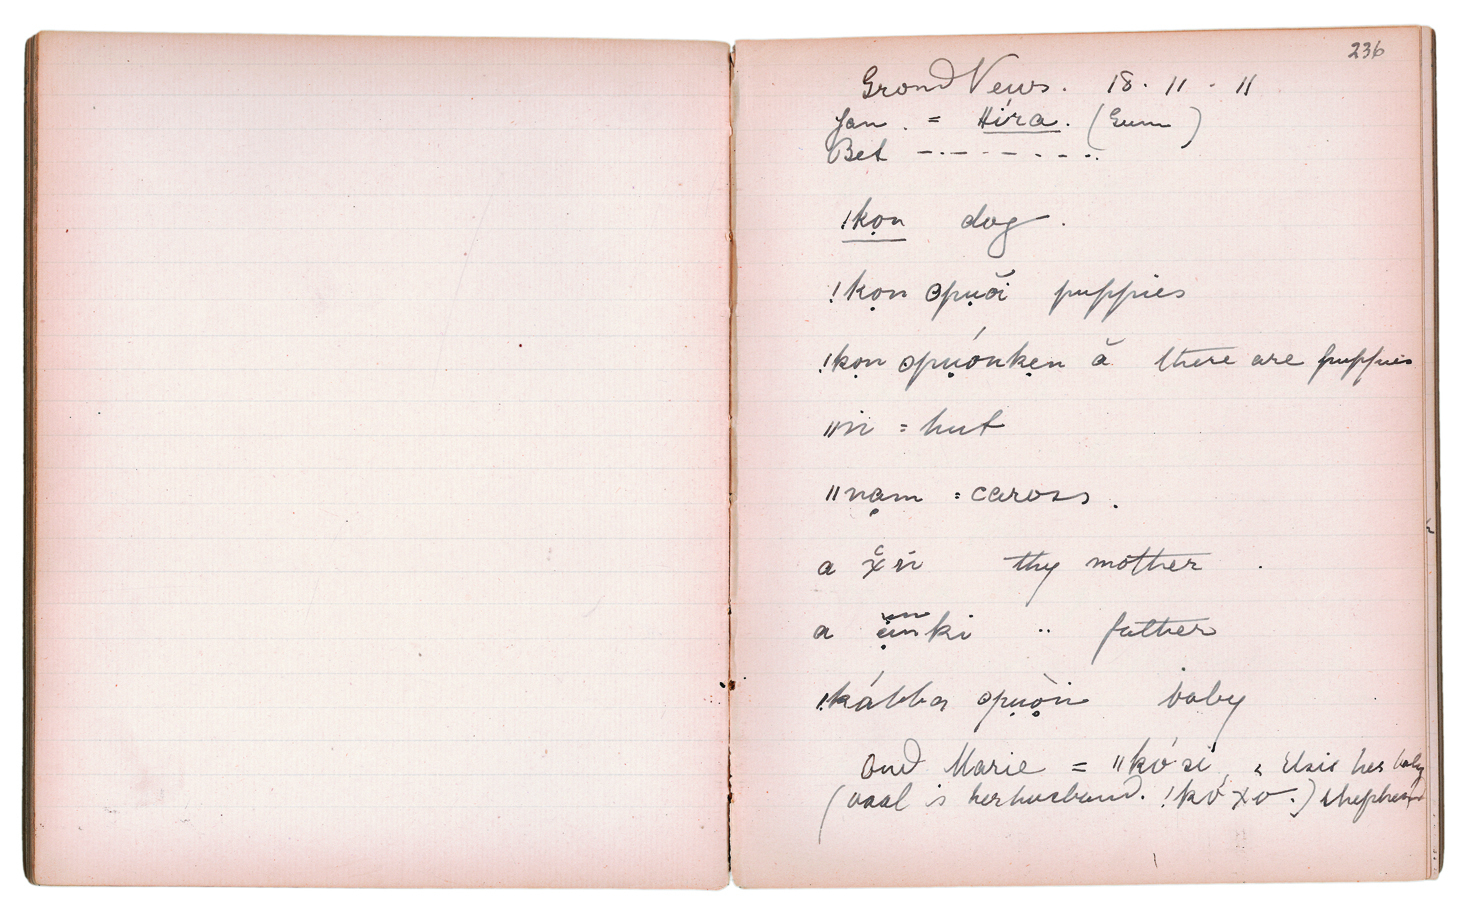 236
Grond News. 18. 11. 11
Jan. = Híra. (Gum)
Bet
!kọn dog.
!kọn ʘpụŏi puppies
!kọn ʘpụónkẹn ă there are puppies
ǁṅ = hut
ǁnạm = caross.
a x̆ṅ thy mother.
a ạ̈nki " father
!kábba ʘpụọ̀n baby
Oud Marie = ǁkó sí, & Elsie her baby
(vaal is her husband. !kó xo.) shepherd